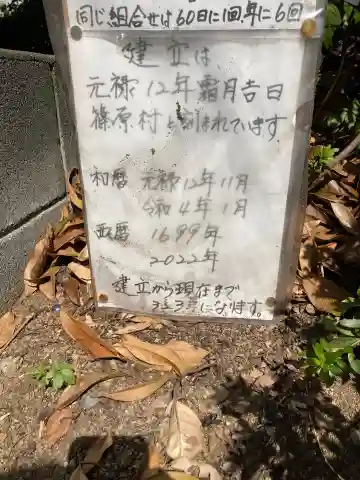 同じ組合せは60日に1回、年に6回
建立は、
元禄12年霜月吉日
篠原村と刻まれています。
和暦 元禄12年11月
令和4年1月
西暦 1699年
2022年
建立から現在まで
323年になります。